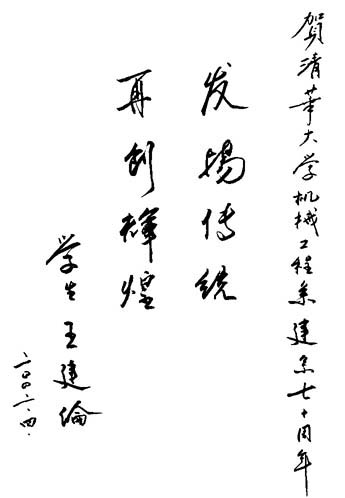 賀清華大学机械工程系建系七十周年
发揚传统
再创輝煌
学生王建倫
二〇〇二.四.